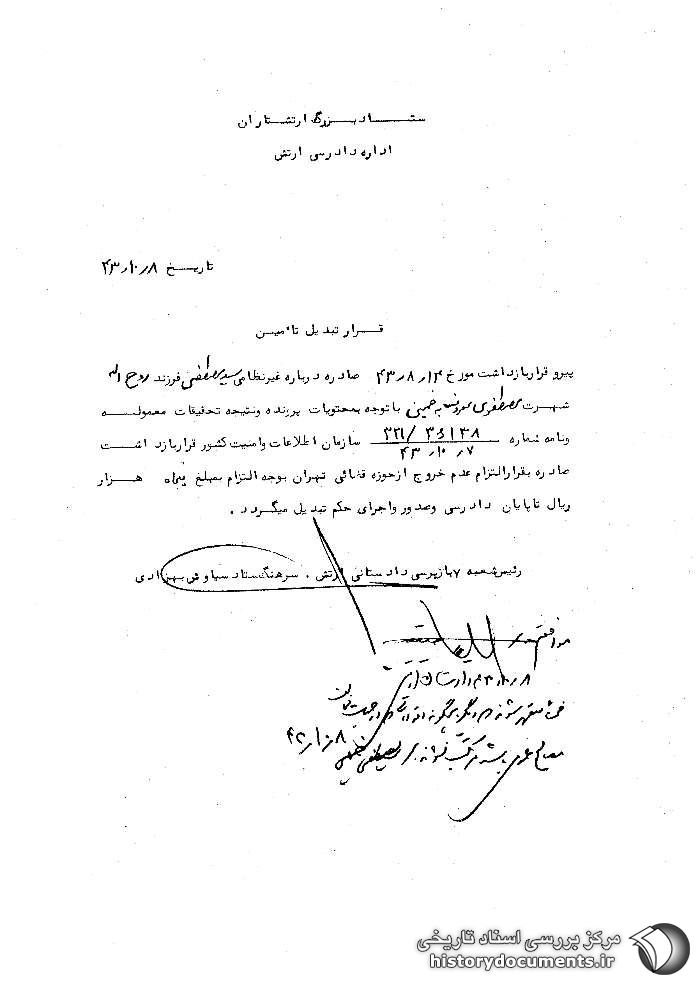 ستاد بزرگ ارتشتاران
اداره دادرسی ارتش
تاریخ ۴۳٫۱۰٫۸
قرار تبدیل تامین
پیرو قرار بازداشت مورخ ۴۳٫۸٫۱۴ صادره درباره غیرنظامی سید مصطفی فرزند روح اله
شهرت مصطفوی معروف به خمینی با توجه بمحتویات پرونده و نتیجه تحقیقات معموله
ونامه شماره ۳۲۱/۳۶۱۳۸ سازمان اطلاعات وامنیت کشور قرار بازداشت
۴۳٫۱۰٫۷
صادره بقرارالتزام عدم خروج ازحوزه قضائی تهران بوجه التزام بمبلغ پنجاه هزار
ریال تاپایان دادرسی وصدور واجرای حکم تبدیل میگردد .
رئیس شعبه ۷ بازپرسی دادستانی ارتش . سرهنگ ستاد سیاوش بهزادی
موافقم
۴۳٫۱۰٫۸ دادستان ارتش
مصالح
مصطفی خمینی ۴۳٫۱۰٫۸
مرکز بررسی اسناد تاریخی
historydocuments.ir